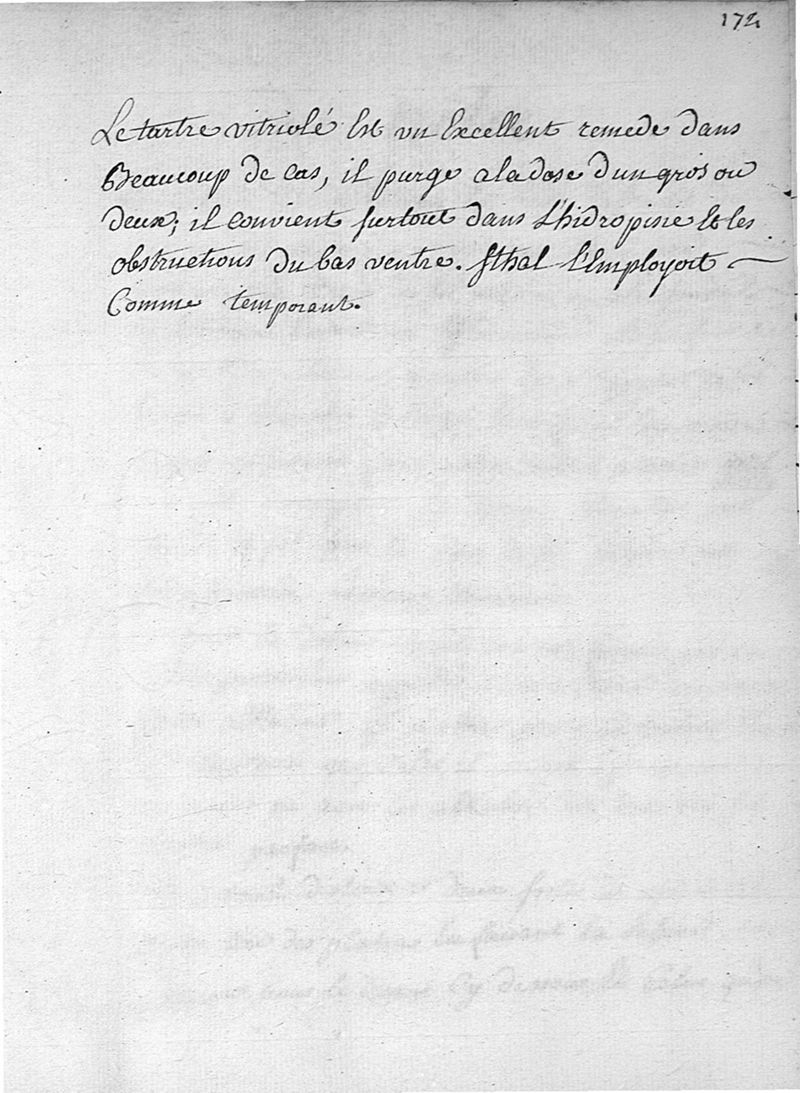 172
Le tartre vitriolé Est un Excellent remede dans
Beaucoup de cas, il purge a la dose d'un gros ou
deux; il convient surtout dans L'hidropisie Et les
obstructions du bas ventre. Sthal l'Employoit
Comme temporant.